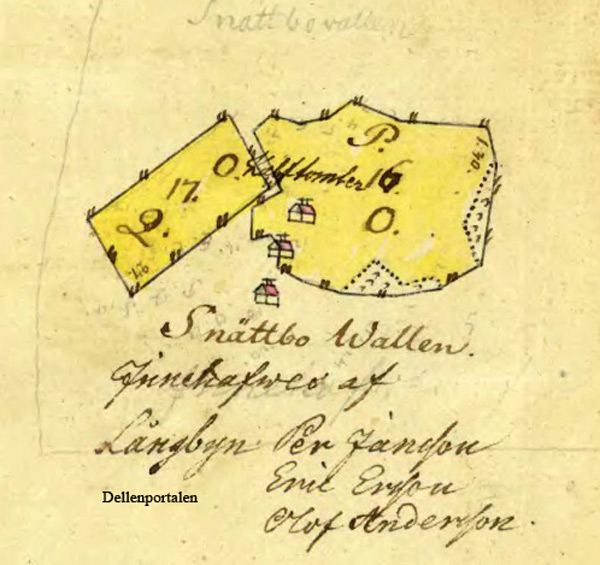 Snättbovallen
P.
O. Hofftomter 16
17.
O.
P.
Snättbo Wallen.
Innehafwes af
Långbyn Per Jansson
Eric Ersson
Dellenportalen
Olof Anderson.